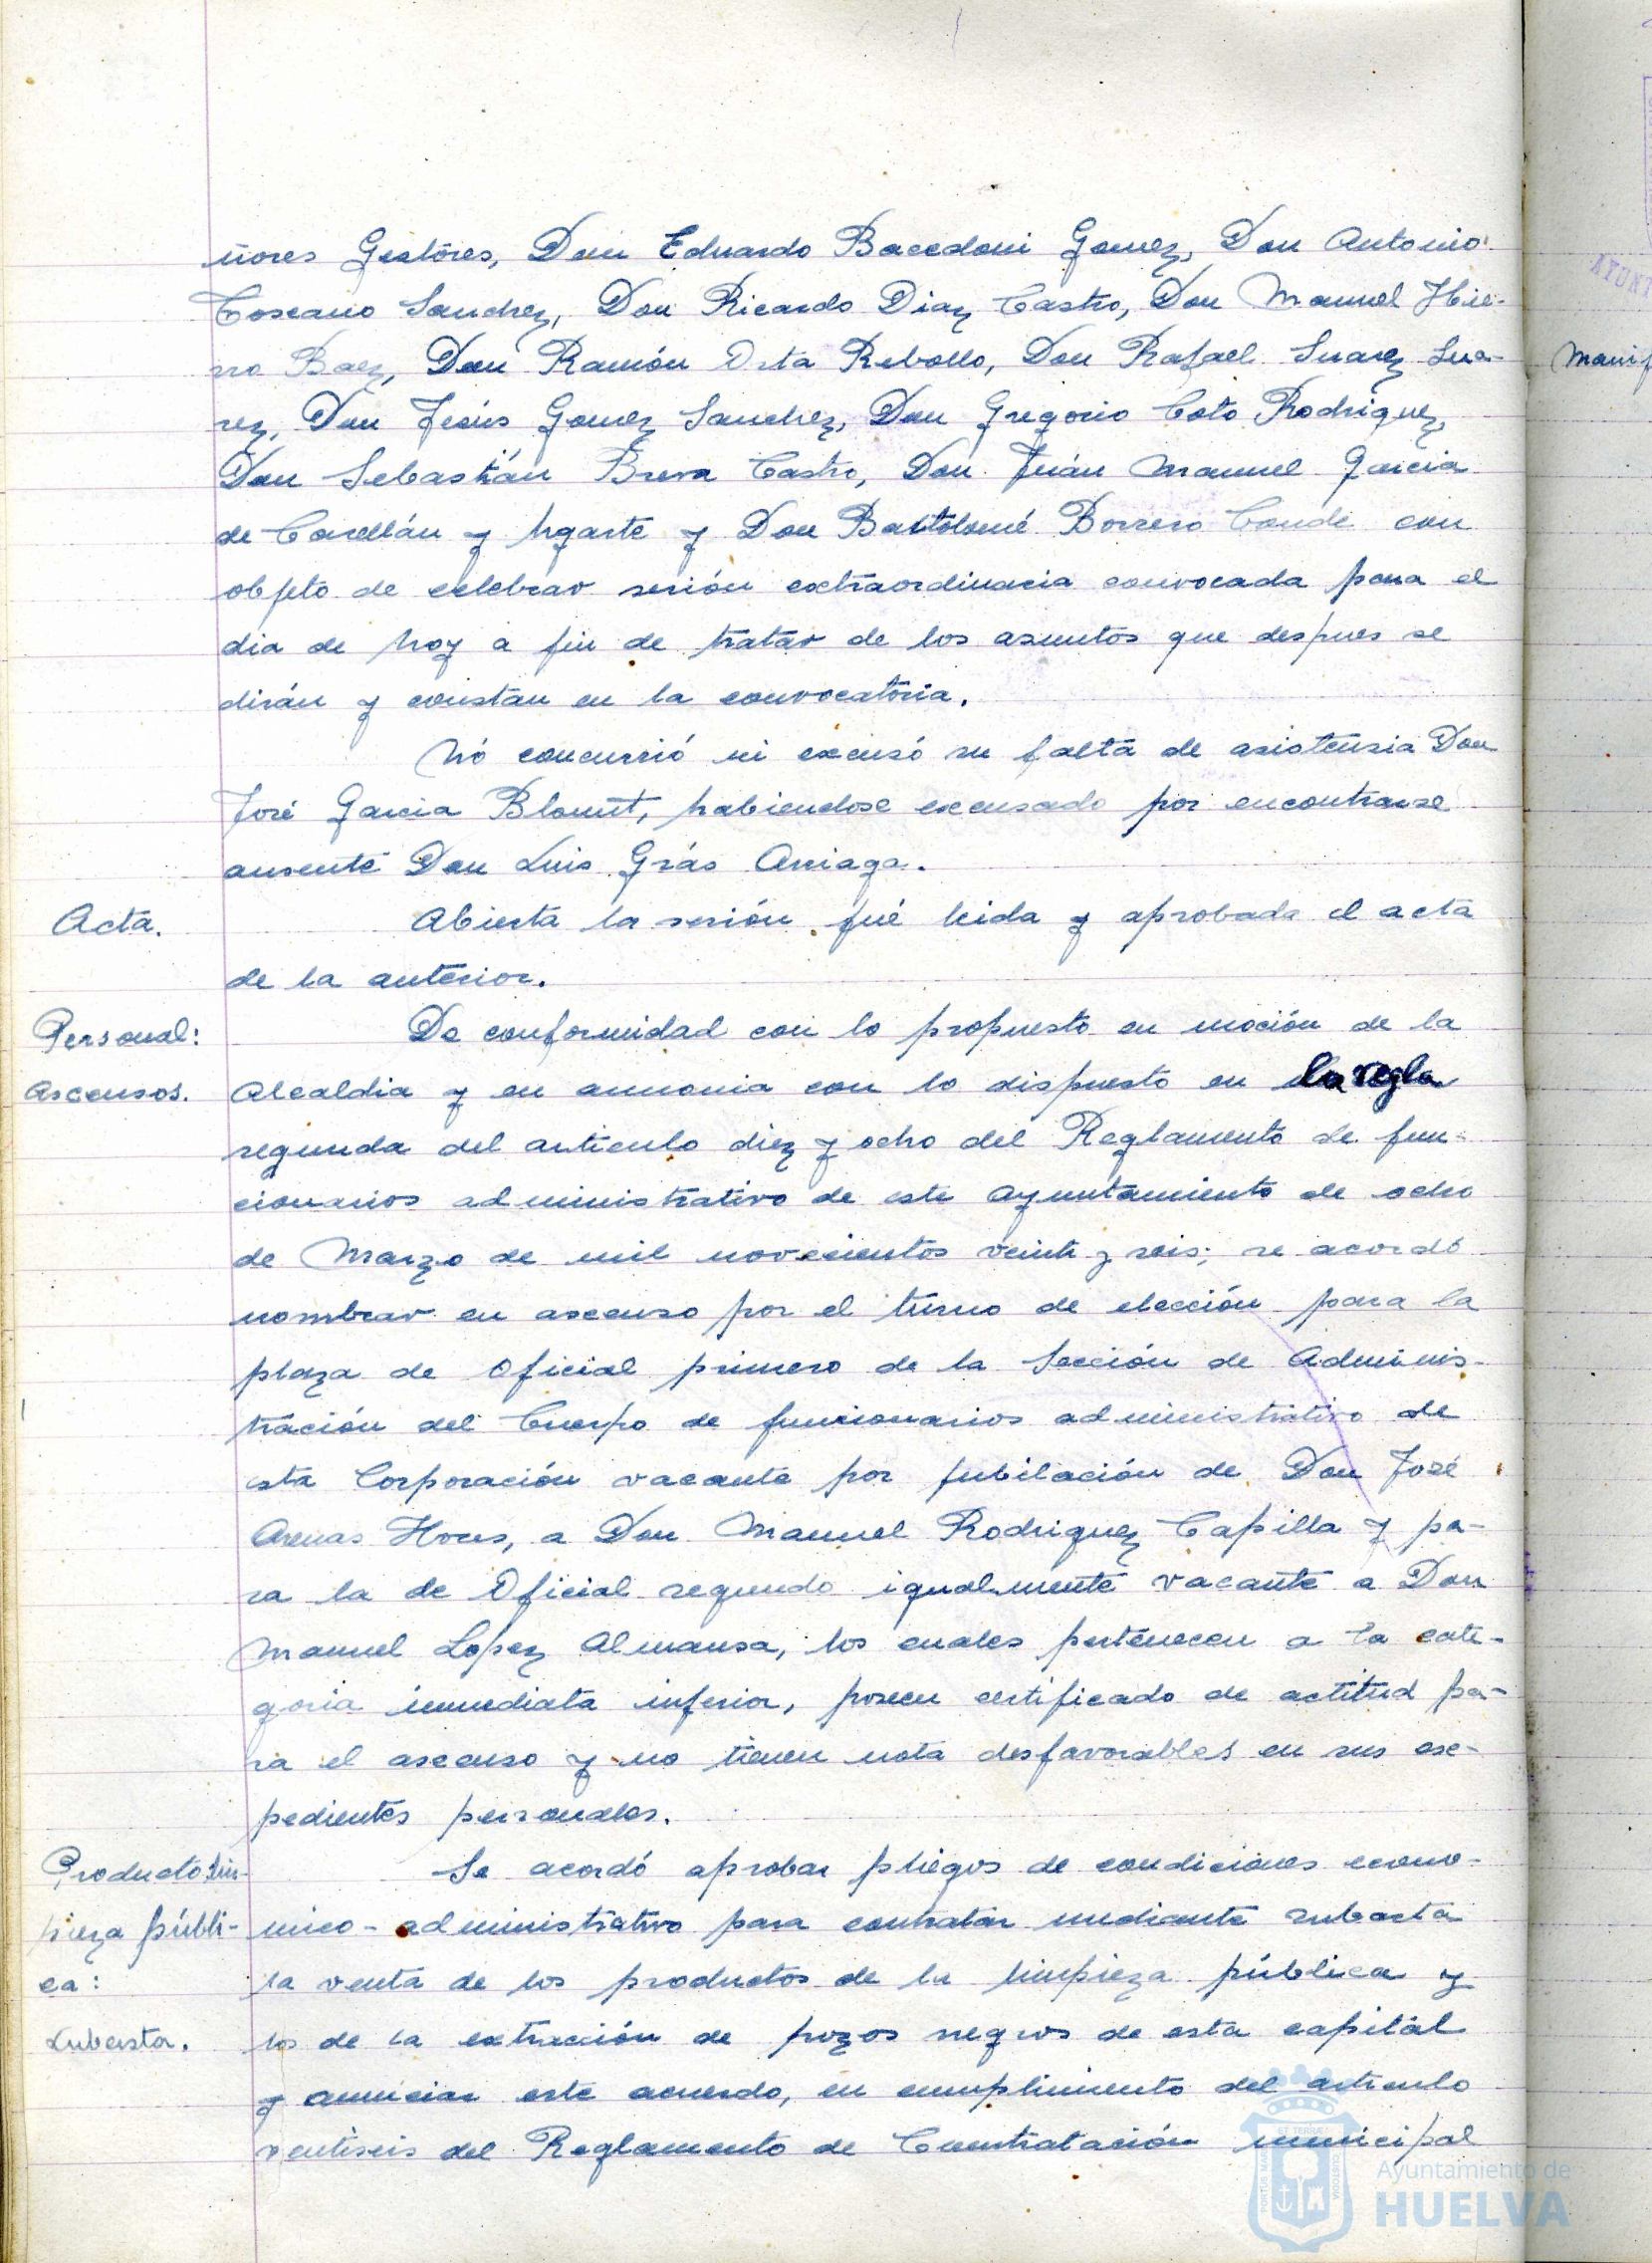 ñores Gestores, Don Eduardo Bacedoni Gomez, Don Antonio
Toscano Sanchez, Don Ricardo Diaz Castro, Don Manuel Hie-
rro Baez, Don Ramón Orta Rebollo, Don Rafael Suarez Sua-
rez, Don Jesús Gomez Sanchez, Don Gregorio Coto Rodriguez,
Don Sebastián Breva Castro, Don Juán Manuel Garcia
de Casellán y Ugarte y Don Bartolomé Borrero Conde con
objeto de celebrar sesión extraordinaria convocada para el
dia de hoy a fin de tratar de los asuntos que despues se
dirán y constan en la convocatoria.
Nó concurrió ni excusó su falta de asistensia Don
José Garcia Blount, habiendose excusado por encontrarse
ausente Don Luis Grás Arriaga.
Acta.
Abierta la sesión fué leida y aprobada el acta
de la anterior.
Personal:
Ascensos.
De conformidad con lo propuesto en moción de la
Alcaldia y en armonia con lo dispuesto en la regla
segunda del articulo diez y ocho del Reglamento de fun-
cionarios administrativo de este Ayuntamiento de ocho
de Marzo de mil novecientos veinte y seis; se acordó
nombrar en ascenso por el turno de elección para la
plaza de Oficial primero de la Sección de Adminis-
tración del Cuerpo de funcionarios administrativo de
esta Corporación vacante por jubilación de Don José
Arenas Hores, a Don Manuel Rodriguez Capilla y pa-
ra la de Oficial segundo igualmente vacante a Don
Manuel Lopez Almansa, los cuales pertenecen a la cate-
goria inmediata inferior, poseen certificado de actitud pa-
ra el ascenso y no tienen nota desfavorables en sus exe-
pedientes personales.
Producto lim-
pieza públi-
ca:
Subasta.
Se acordó aprobar pliegos de condiciones econo-
mico-administrativo para contratar mediante subasta
la venta de los productos de la limpieza pública y
los de la extracción de pozos negros de esta capital
y anunciar este acuerdo, en cumplimiento del articulo
ventiseis del Reglamento de Contratación municipal
Manif
AYUNT
Ayuntamiento de
HUELVA